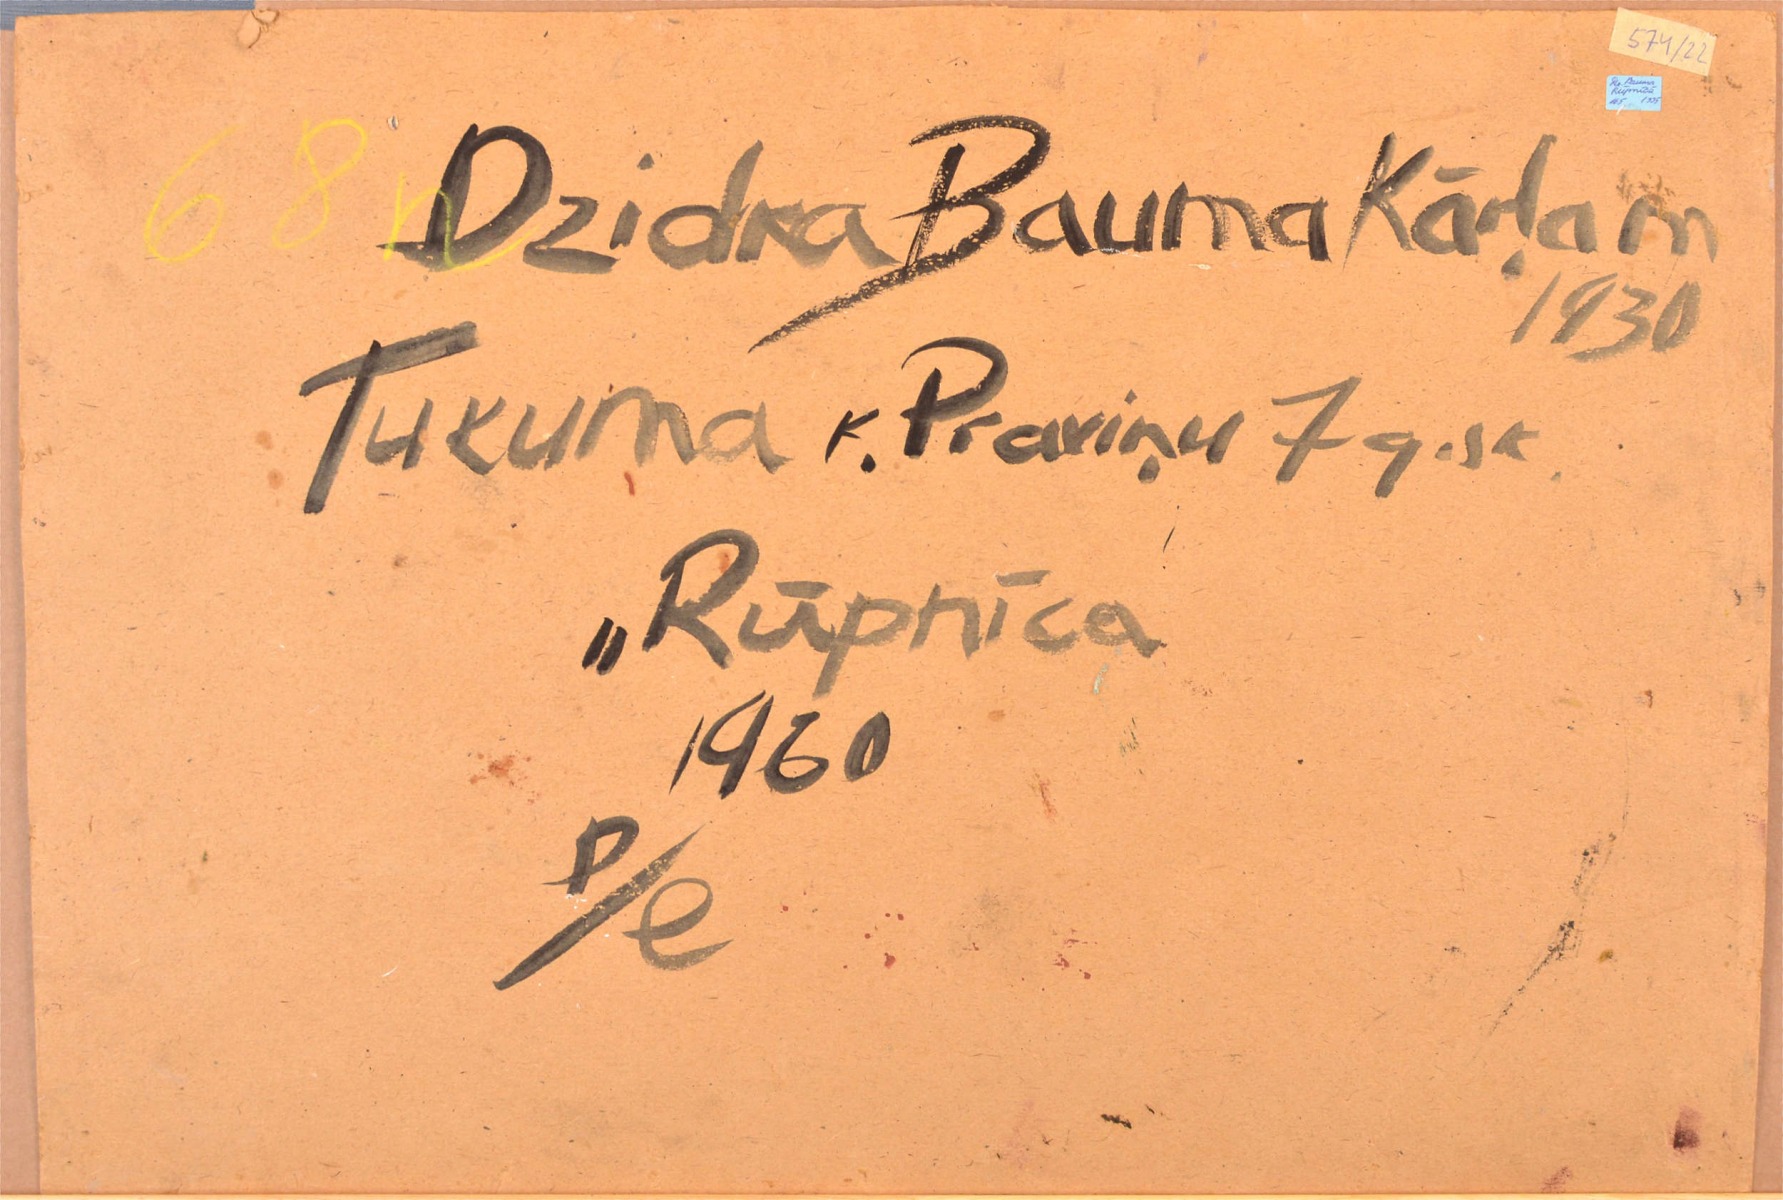 574/22
Dz. Bauma
Rūpnīca
68n
Dzidra Bauma Kārļa m
1930
Tukuma k. Praviņu 7 g. sk.
„Rūpnīca
1960
P/e